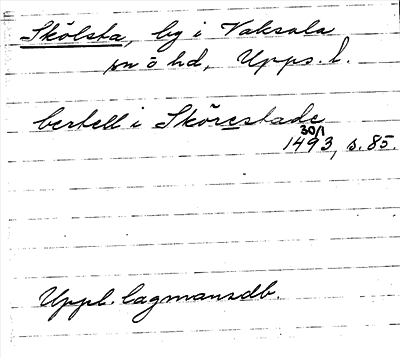 Skölsta, by i Vaksala
sn o hd, Upps. l.
bertell i Skörestade
30/1
1493, s. 85.
Uppl. lagmansdb.